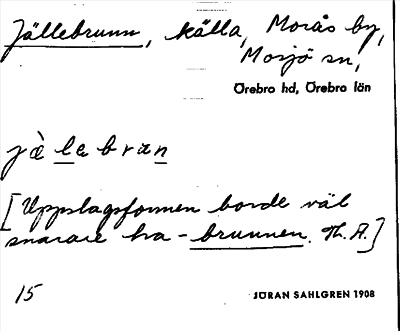 Jällebrunn, källa, Morås by,
Mosjö sn,
Örebro hd, Örebro län
jàlebran
[Uppslagsformen borde väl
snarare ha -brunnen. Th. A.]
15
JÖRAN SAHLGREN 1908